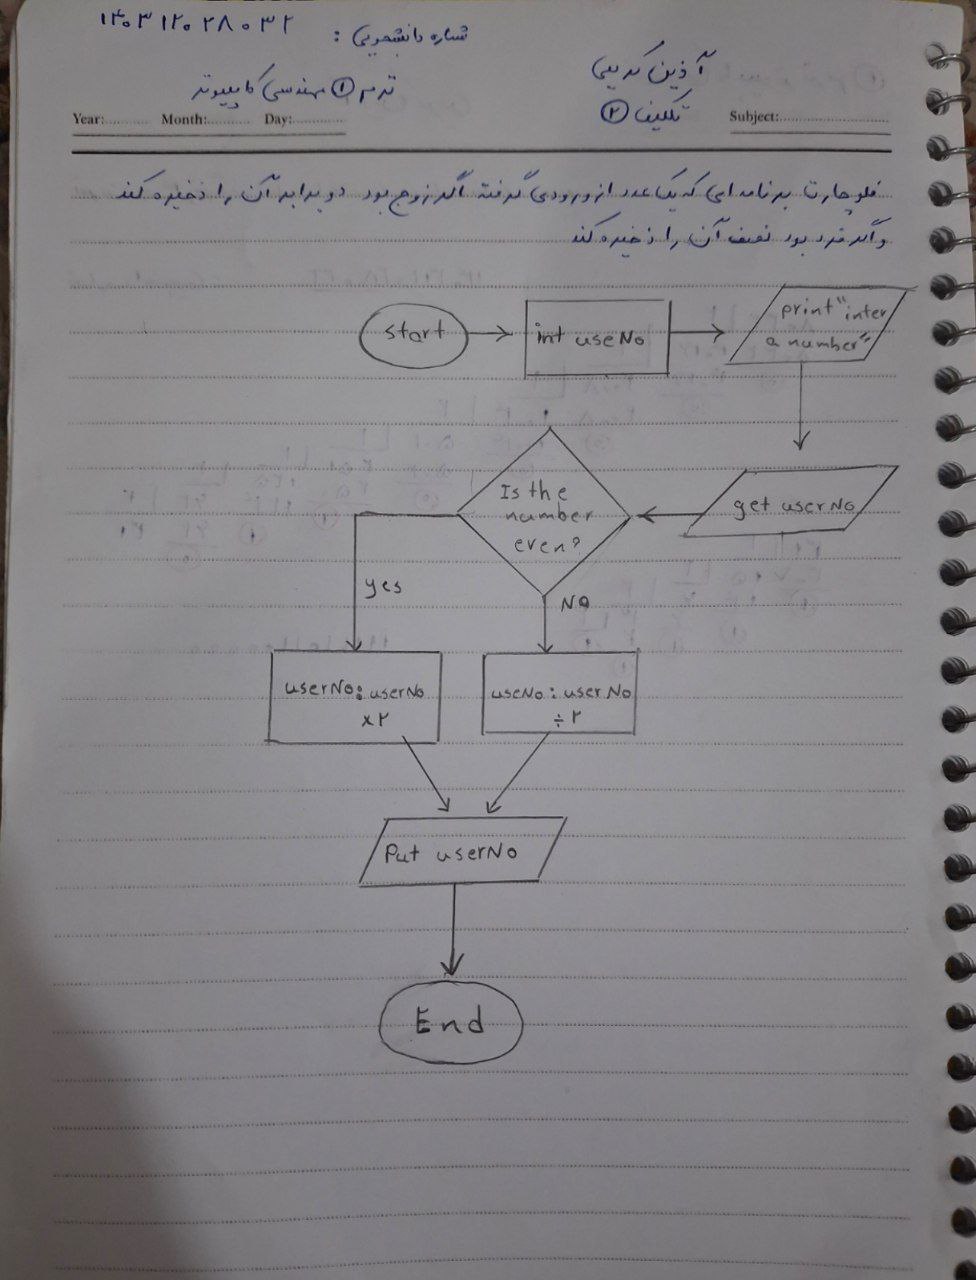 شماره دانشجویی : ۱۴۰۳۱۲۰۲۸۰۳۲
آذین کریمی
ترم ① مهندسی کامپیوتر
تکلیف ②
Year:........ Month:........ Day:........ Subject:........
فلوچارت برنامه ای که یک عدد از ورودی گرفته اگر زوج بود دو برابر آن را ذخیره کند
و اگر فرد بود نصف آن را ذخیره کند
start
int useNo
print "inter
a number"
get userNo
Is the
number
even?
yes
No
userNo: userNo
×۲
useNo: userNo
÷۲
Put userNo
End